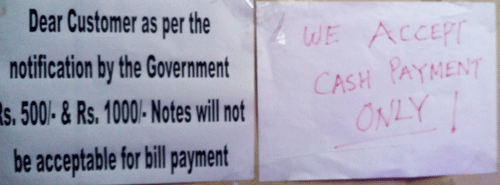 Dear Customer as per the
notification by the Government
Rs. 500/- & Rs. 1000/- Notes will not
be acceptable for bill payment
WE ACCEPT
CASH PAYMENT
ONLY!